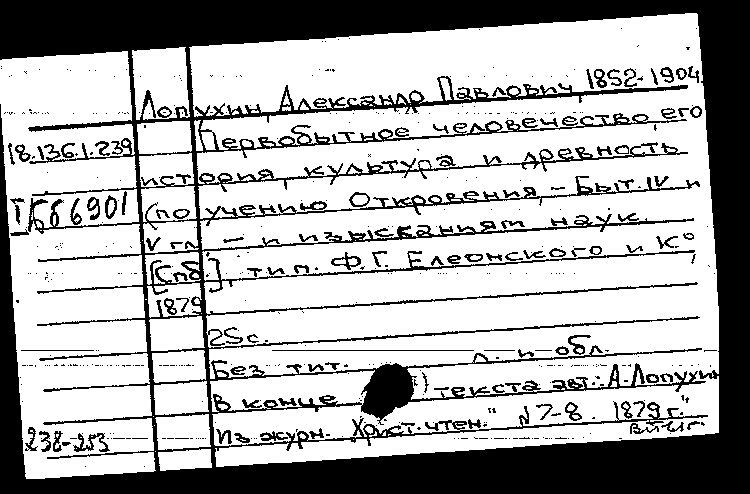 Лопухин, Александр Павлович, 1852-1904.
18.136.1.239
Первобытное человечество, его
история, культура и древность
I/Бб6901
(по учению Откровения, - Быт. IV и
V гл. - и изысканиям наук.
[Спб.], тип. Ф.Г. Елеонского и К°,
1879.
25с.
Без тит. л. и обл.
В конце текста авт.: А. Лопухин
Из журн. Христ. чтен." №7-8. 1879 г."
238-253